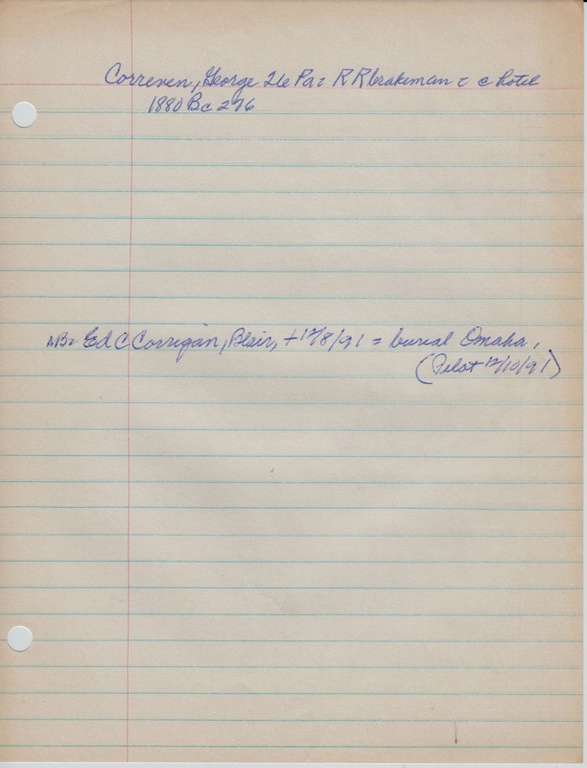 Correven, George 26 Pa = R R brakeman = c hotel
1880 Bc 276
NB = Ed C Corrigan, Blair, + 12/8/91 = burial Omaha,
(Pilot 12/10/91)